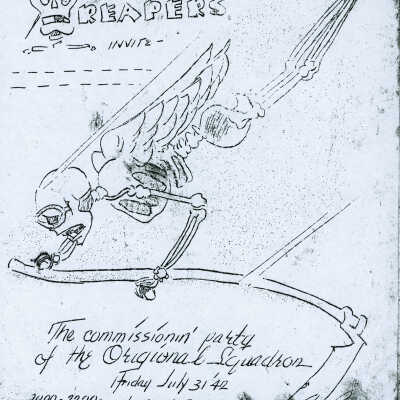 REAPERS
INVITE
The commissionin' party
of the Origional Squadron
Friday July 31 42